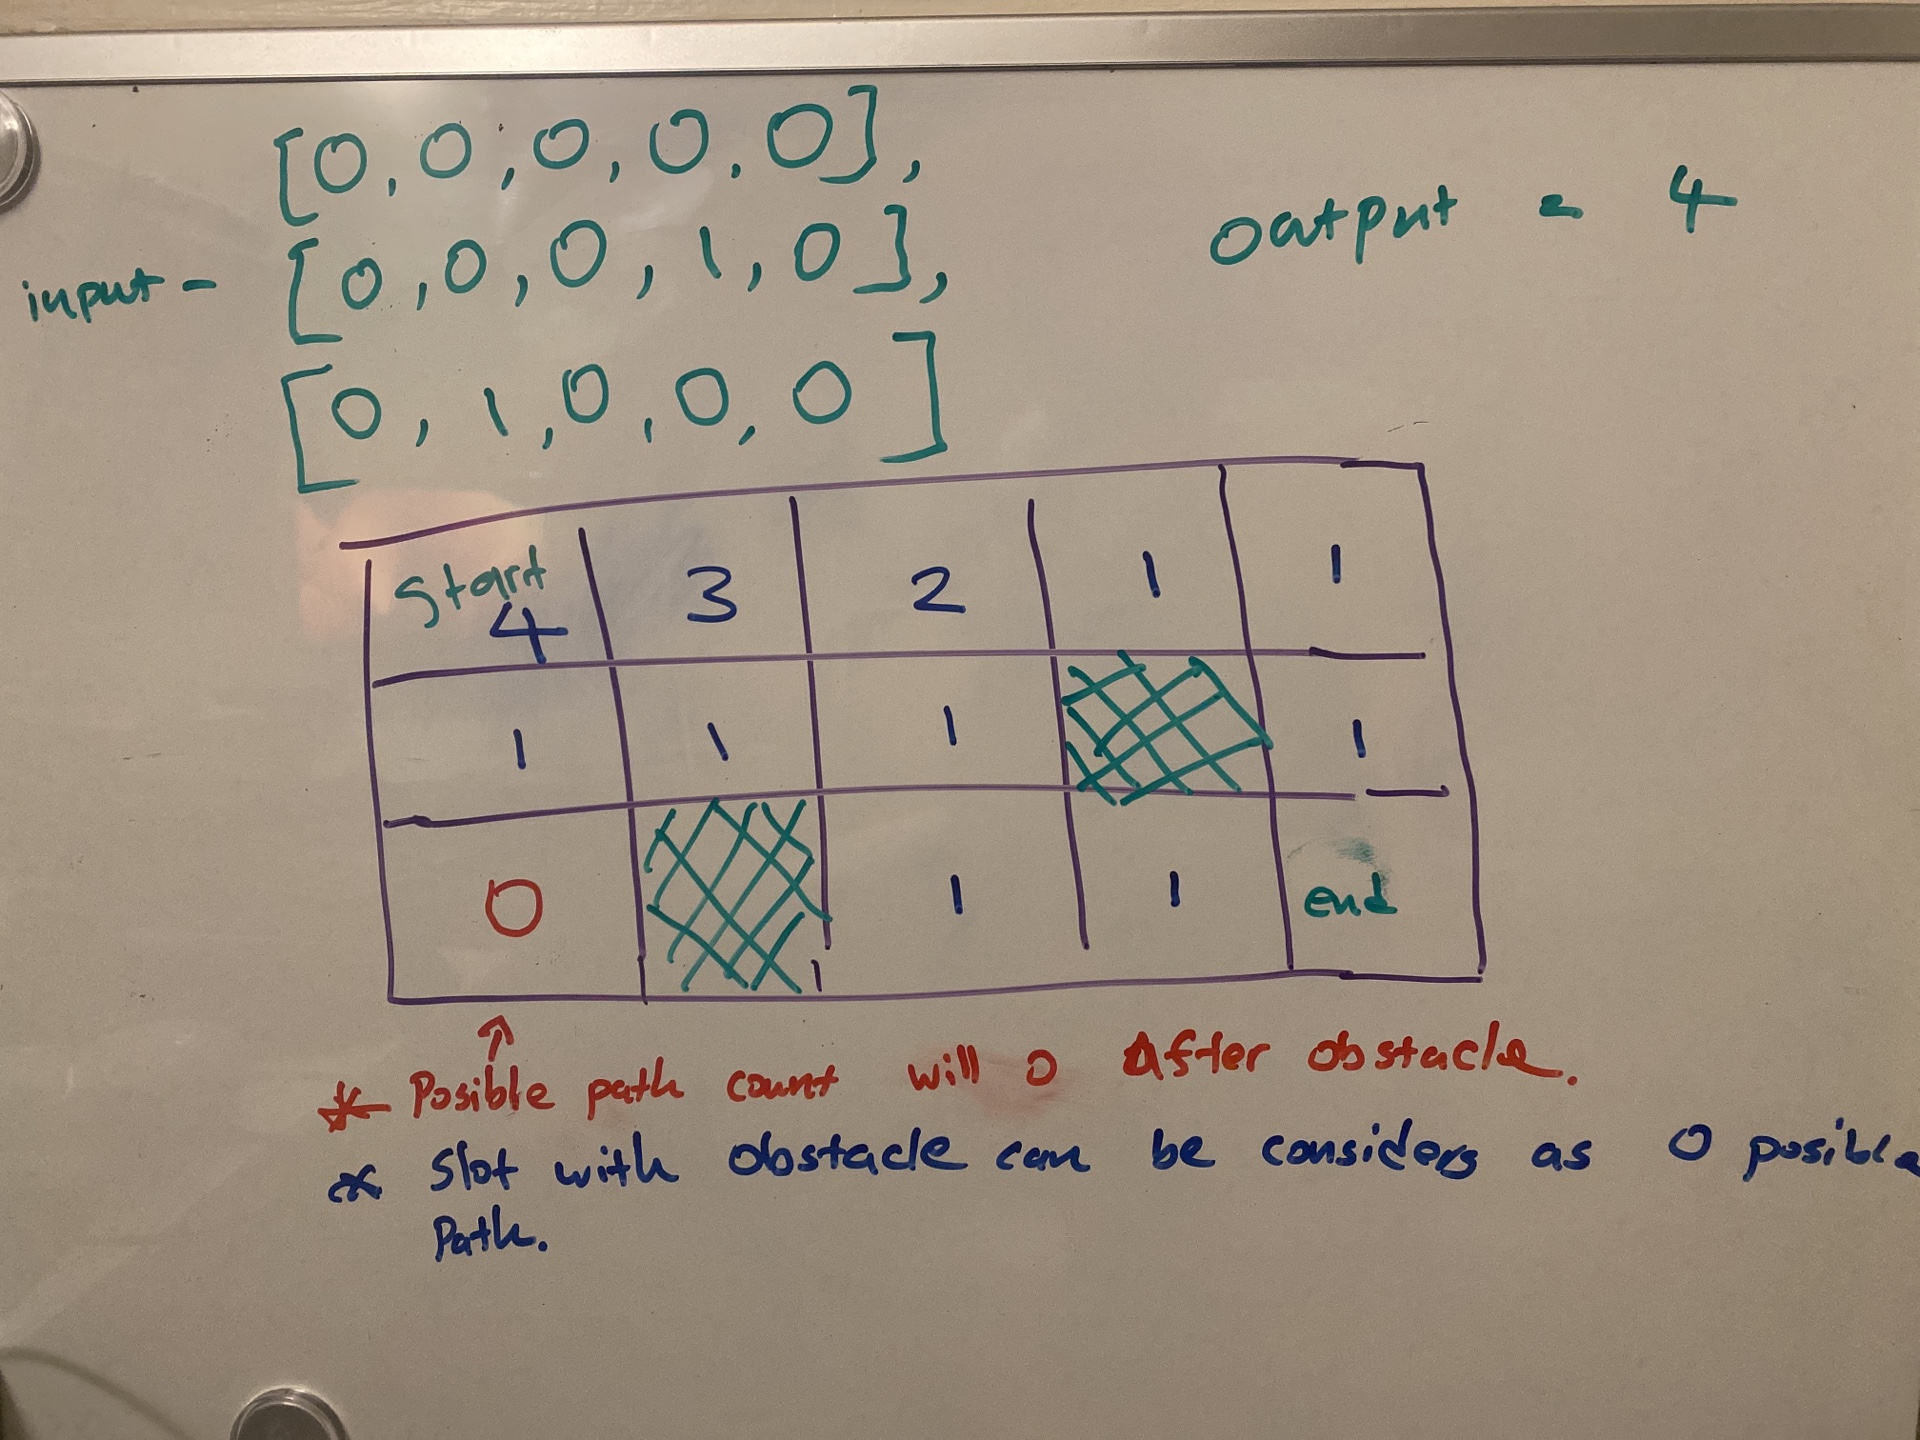 [0, 0, 0, 0, 0],
output = 4
input - [0, 0, 0, 1, 0],
[0, 1, 0, 0, 0]
start 4 3 2 1 1
1 1 1 1
0 1 1 end
* Posible path count will 0 After obstacle.
* Slot with obstacle can be considers as 0 posible
Path.